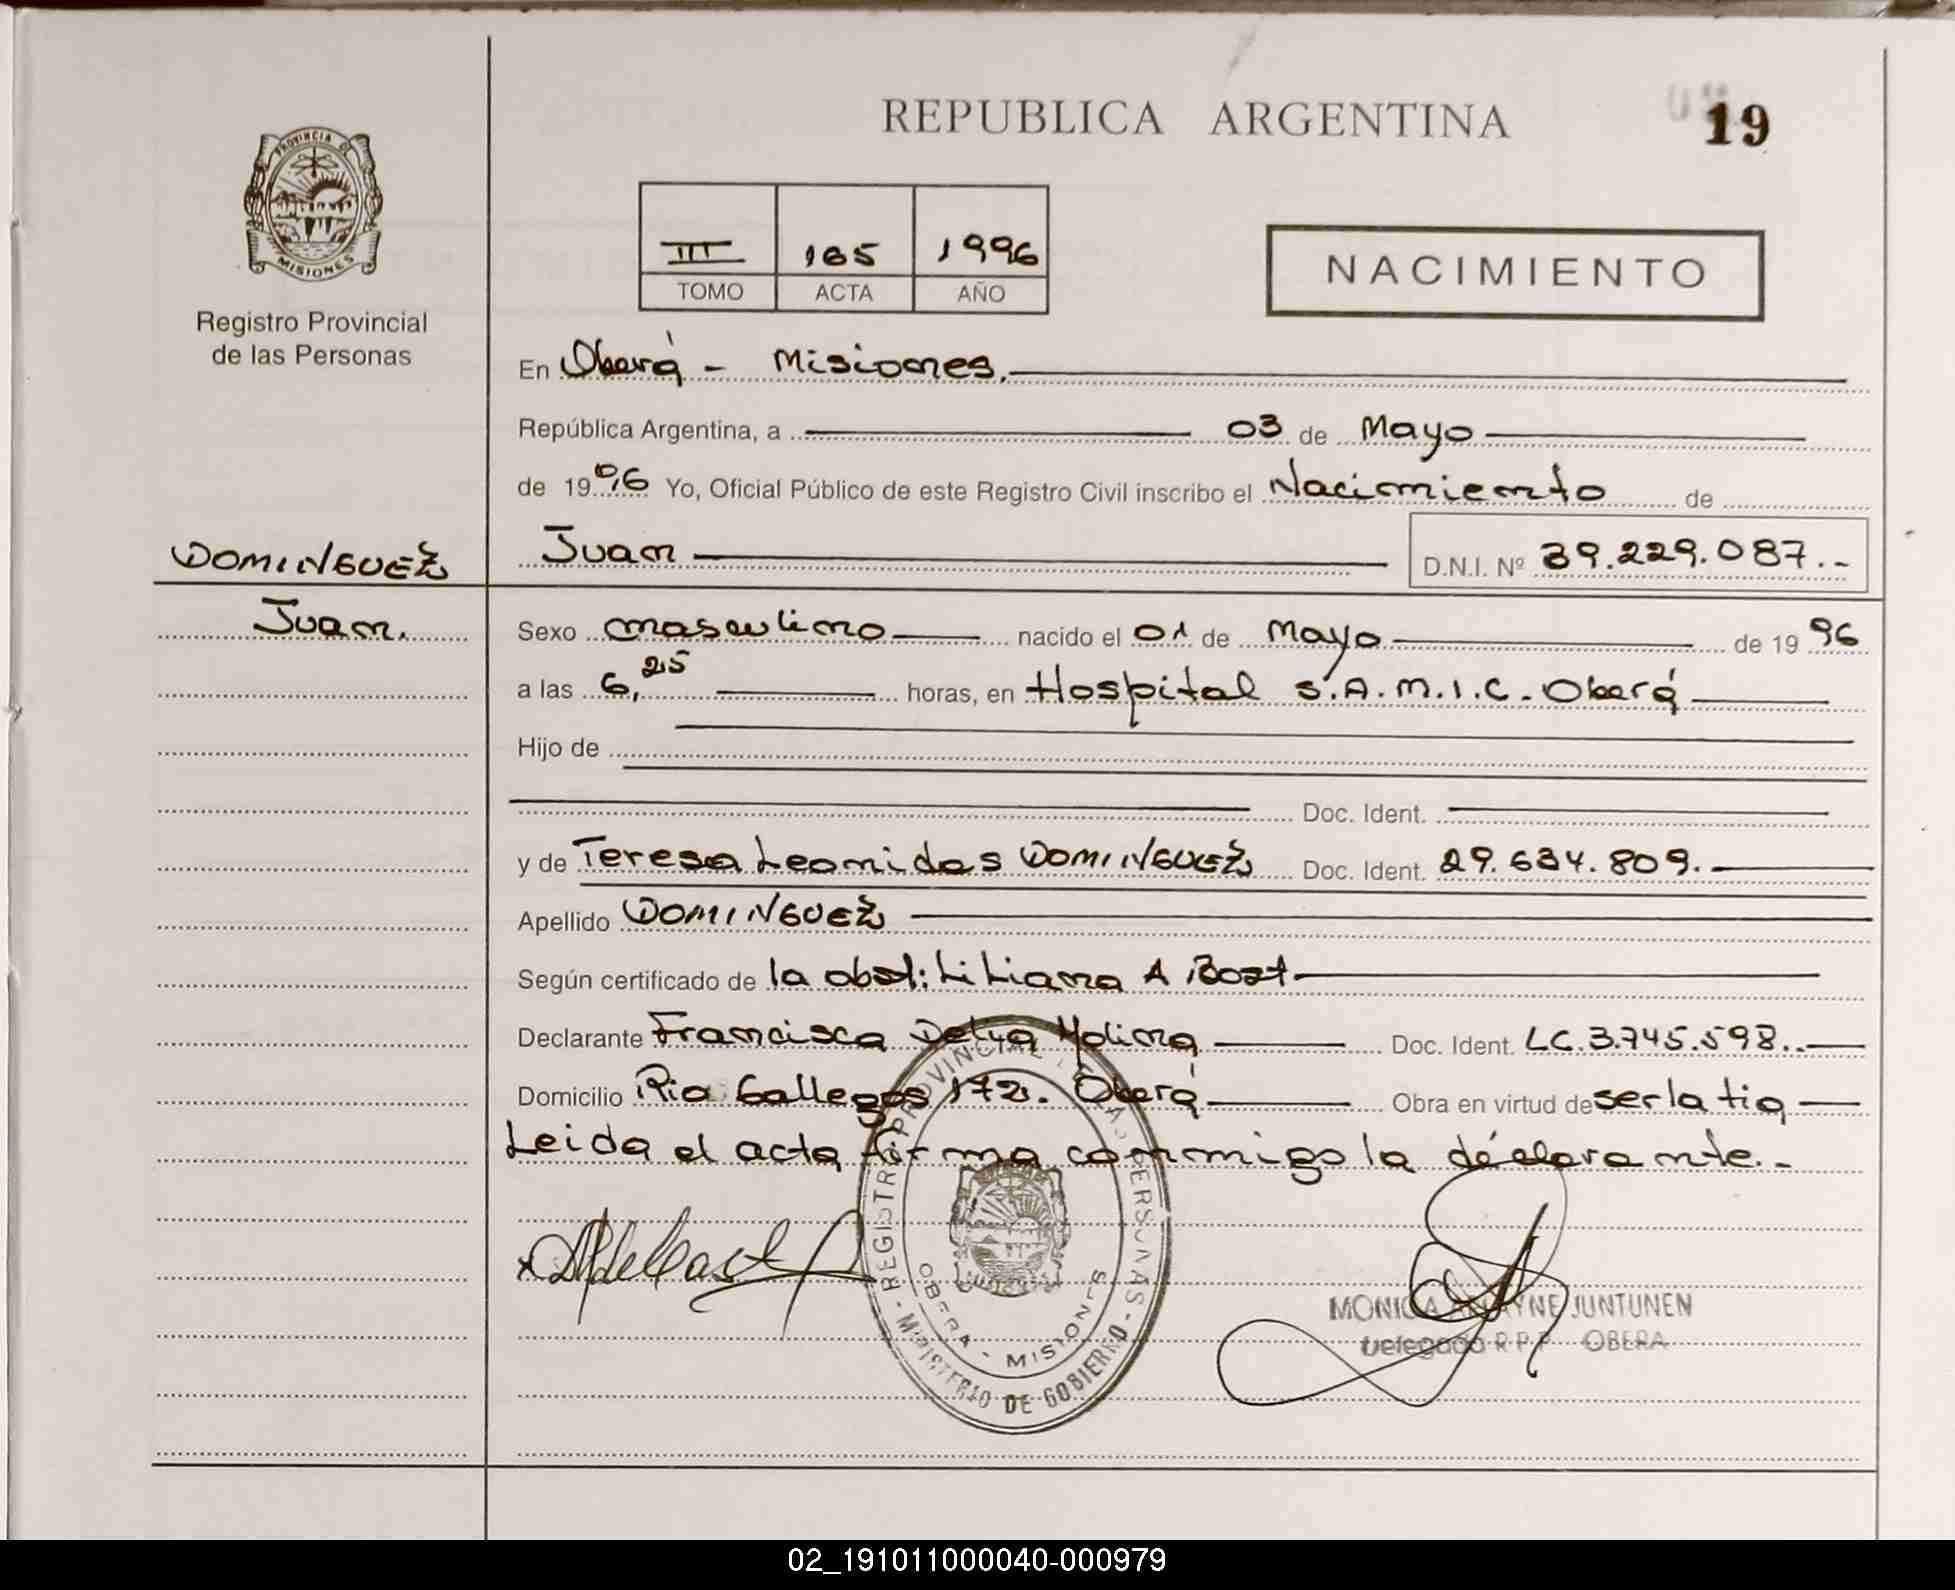 REPUBLICA ARGENTINA
19
PROVINCIA DE
MISIONES
Registro Provincial
de las Personas
III 165 1996
TOMO ACTA AÑO
NACIMIENTO
En Oberá - Misiones.
República Argentina, a 03 de Mayo
de 1996 Yo, Oficial Público de este Registro Civil inscribo el Nacimiento de
DOMINGUEZ
Juan D.N.I. Nº 39.229.087.-
Juan.
Sexo masculino nacido el 01 de Mayo de 1996
a las 6,25 horas, en Hospital S.A.M.I.C. Oberá
Hijo de
Doc. Ident.
y de Teresa Leonidas DOMINGUEZ Doc. Ident. 29.634.809.
Apellido DOMINGUEZ
Según certificado de la obst: Liliana A Bozt
Declarante Francisca Delia Molina Doc. Ident. LC.3.745.598..
Domicilio Rio Gallegos 172. Oberá Obra en virtud de ser la tia
Leida el acta firma conmigo la déclarante.-
REGISTRO PROVINCIAL DE LAS PERSONAS - MINISTERIO DE GOBIERNO -
OBERA - MISIONES
MONICA JUNTUNEN
Delegada R.P.P. OBERA
02_191011000040-000979